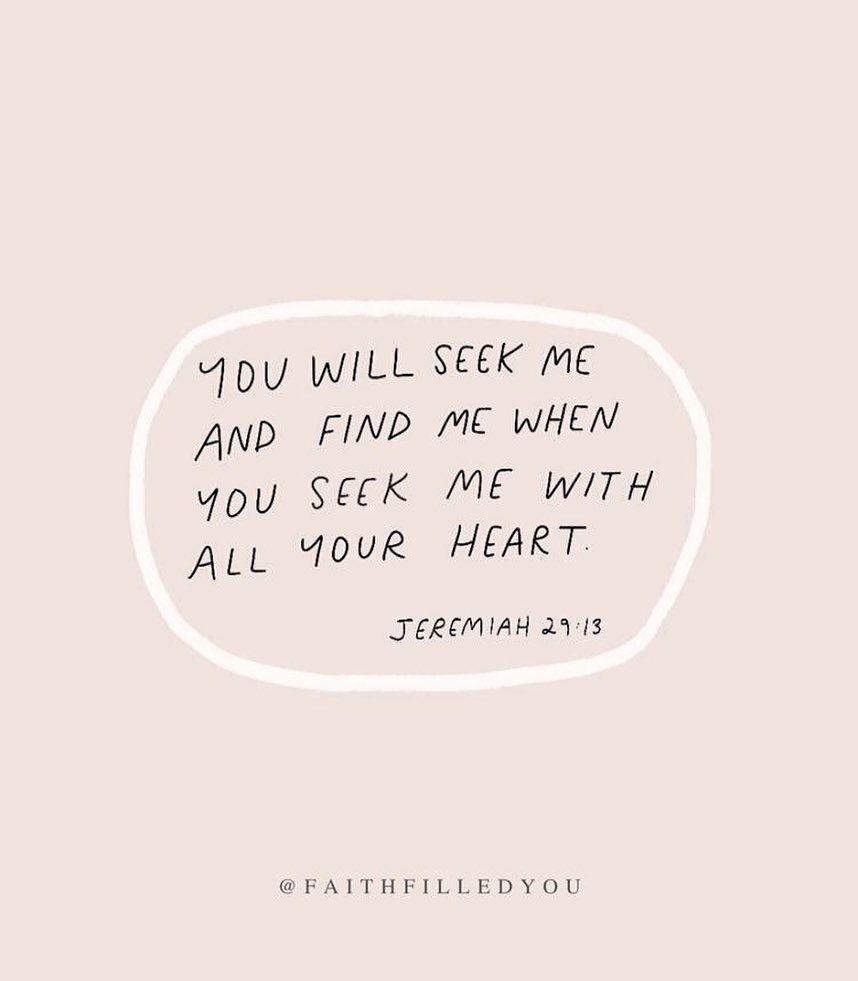 YOU WILL SEEK ME
AND FIND ME WHEN
YOU SEEK ME WITH
ALL YOUR HEART.
JEREMIAH 29:13
@FAITHFILLEDYOU